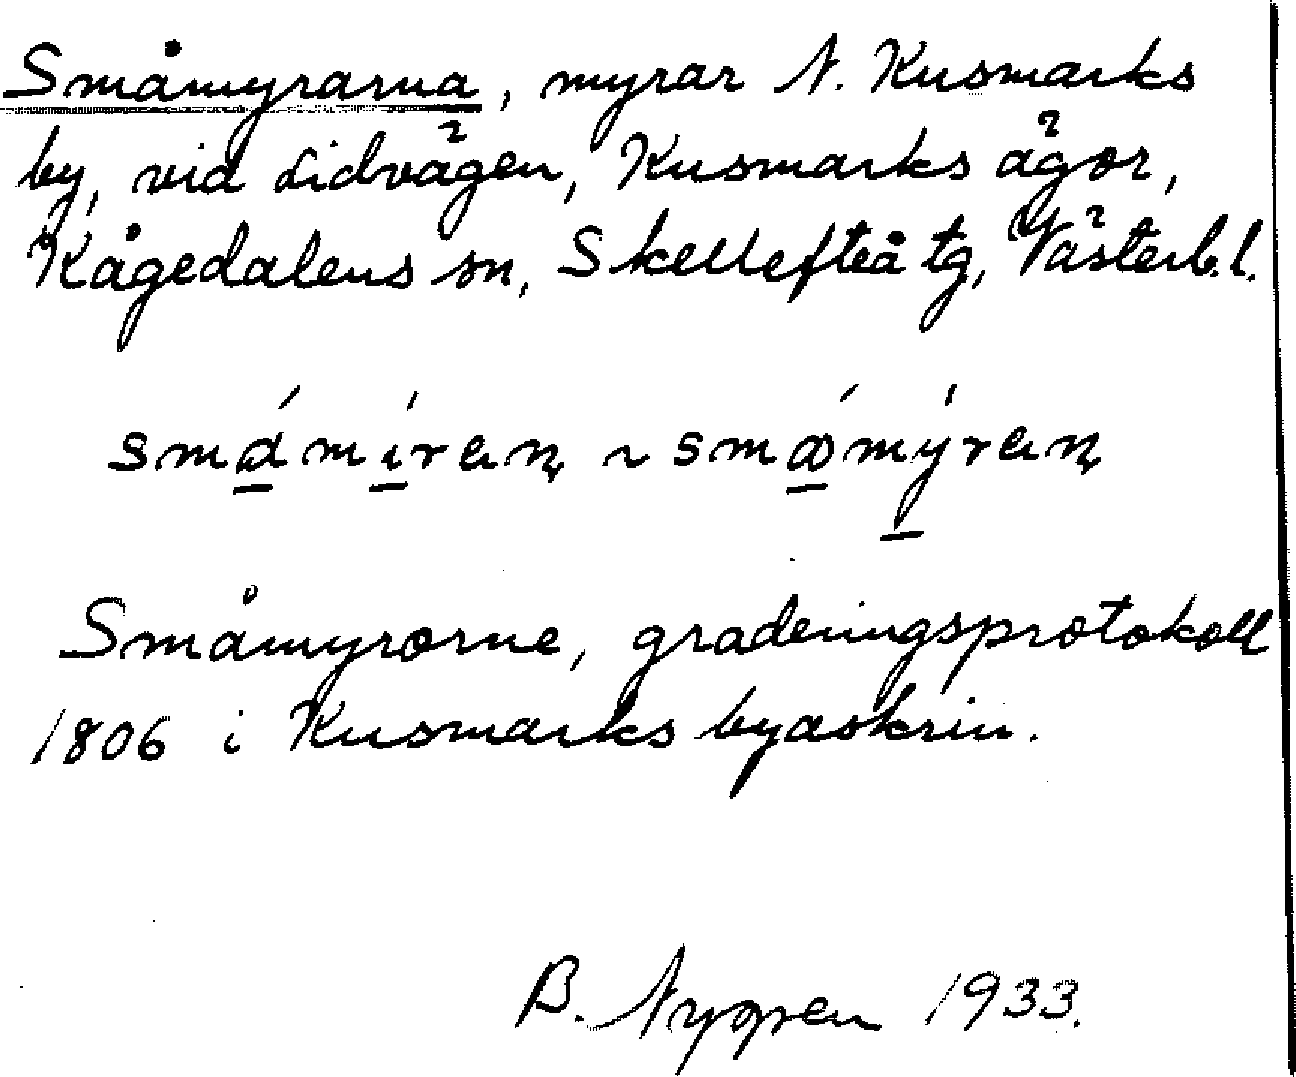 Småmyrarna, myrar N. Kusmarks
by, vid Lidvägen, Kusmarks ägor,
Kågedalens sn, Skellefteå tg, Västerb. l.
Småmyrorne, graderingsprotokoll
1806 i Kusmarks byaskrin.
B. Nyppen 1933.